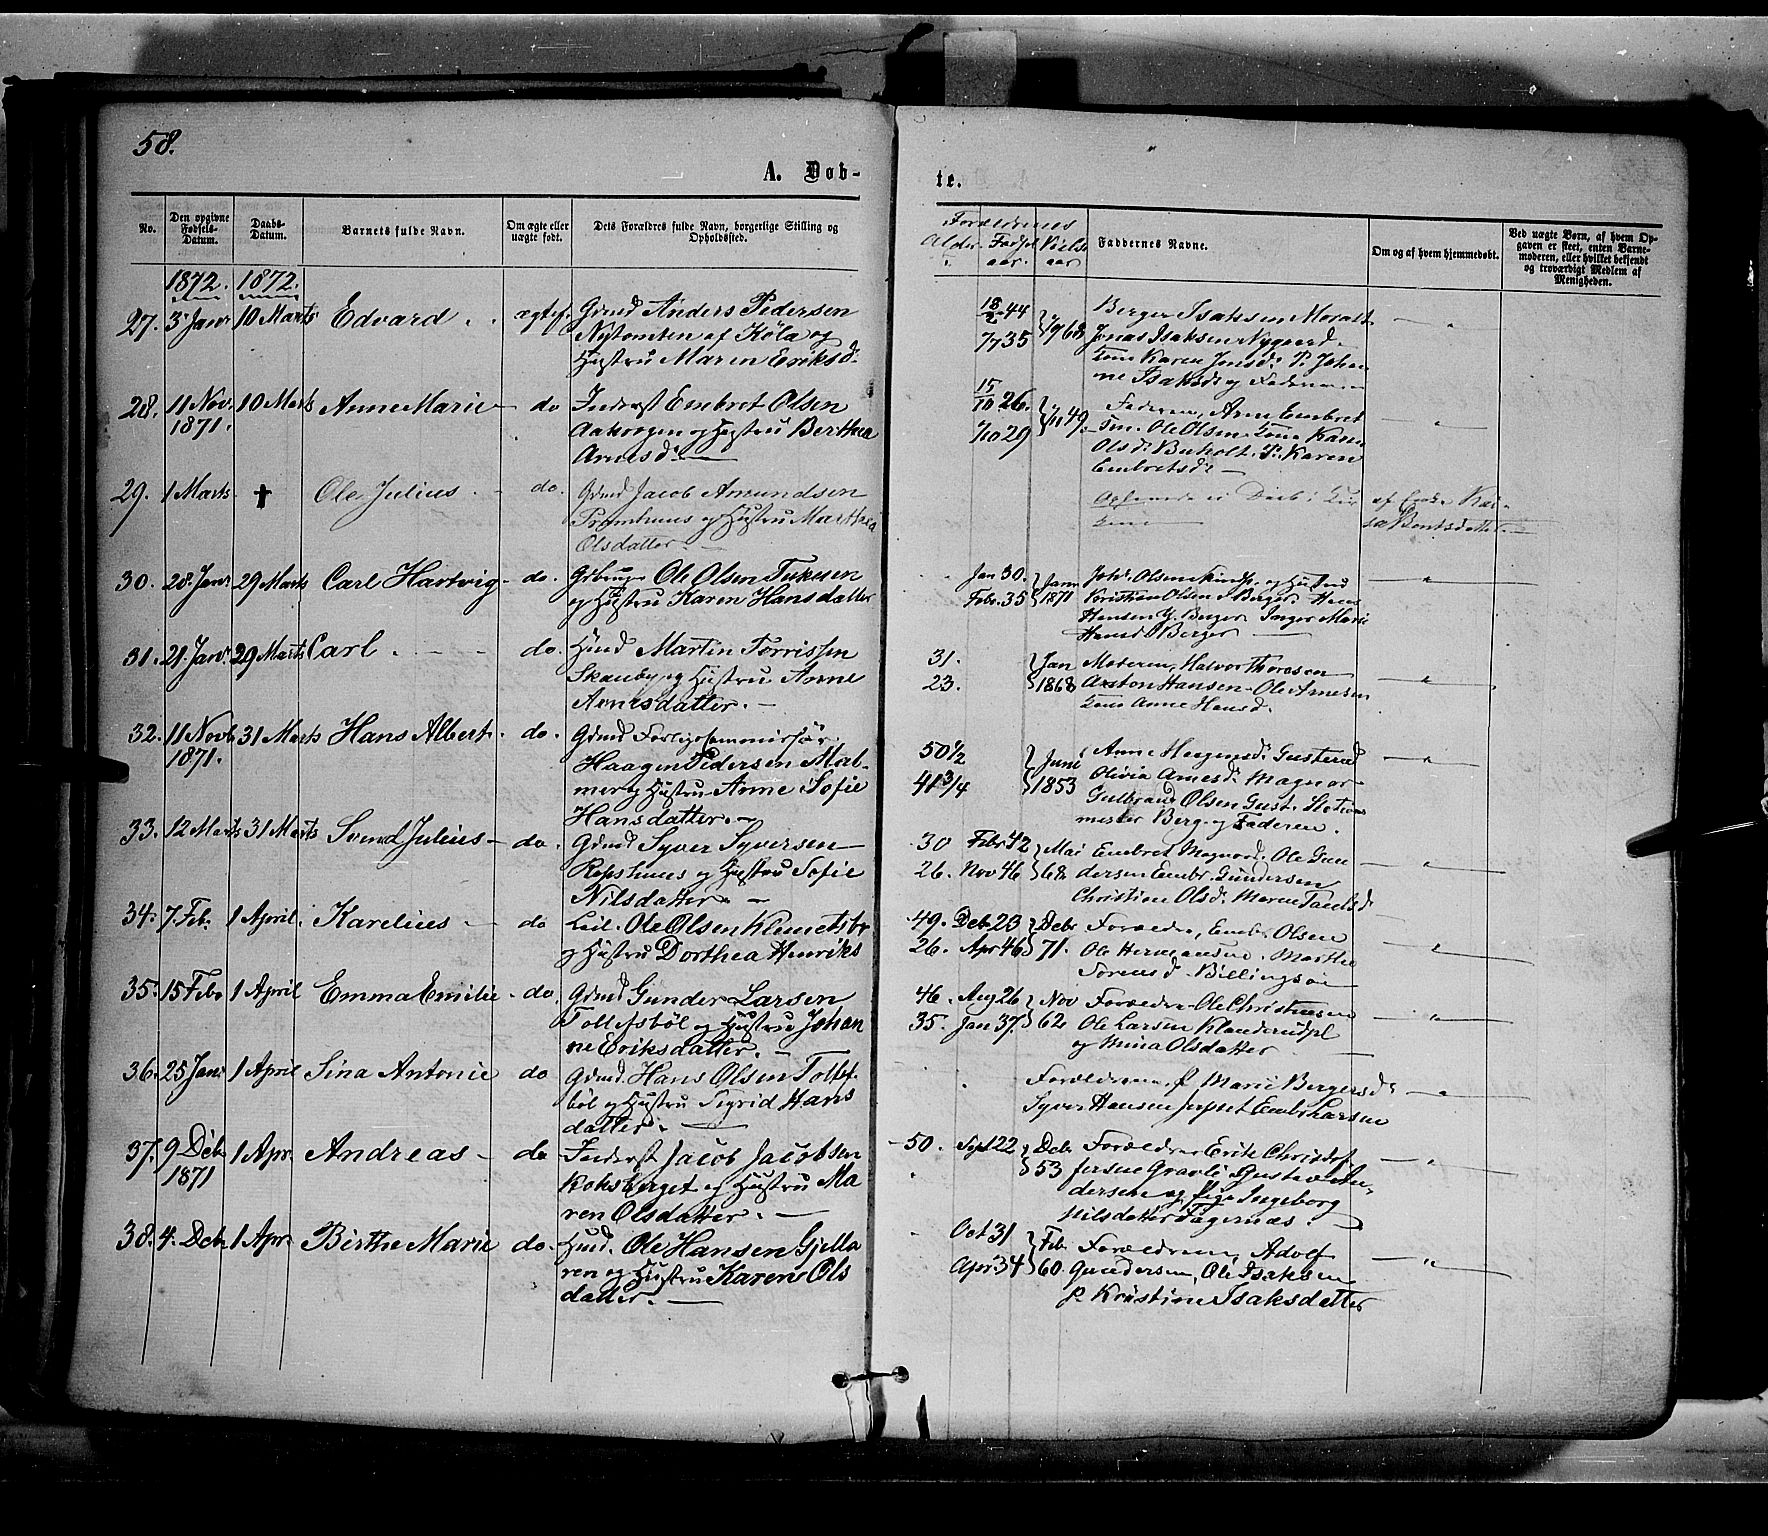 58.
A. Døb-
te.
No.
Den opgivne Fødsels-Datum.
Daabs-Datum.
Barnets fulde Navn.
Om ægte eller uægte født.
Dets Forældres fulde Navn, borgerlige Stilling og Opholdssted.
Forældrenes
Alder. Fødsels aar. Vielses aar
Faddernes Navne.
Om og af hvem hjemmedøbt.
Ved uægte Børn, af hvem Opgaven er skeet, enten Barnemoderen, eller hvilket bekjendt og troværdigt Medlem af Menigheden.
1872. 1872.
27. 3 Jan. 10 Marts Edvard. ægtef. Gmd Anders Pedersen
Nystomten af Köla og
Hustru Maren Eriksd.
18/2 44
7/7 35
68
Berger Isaksen
Jonas Isaksen Nygaard
Kone Karen Jensd. P. Johan
ne Isaksd. og Faderen
28. 11 Nov. 1871. 10 Marts Anne Marie do Inderst Embret Olsen
og Hustru Berthea
Arnesd.
15/10 26.
7/10 29
49.
Faderen, Arne Embret
sen. Ole Olsen Kone Karen
Olsd. Buholt. P. Karen
Embretsd.
29. 1 Marts † Ole Julius do. Gmd Jacob Amundsen
og Hustru Marthea
Olsdatter.
af Enke
Bentsdatter
30. 28. Jan. 29 Marts Carl Hartvig do. Gbruger Ole Olsen
og Hustru Karen Hansdatter
Jan 30.
Febr. 35
Janr 1871
Joh. Olsen og Hustru
Kristian Olsen Berger. Hans
Hansen Berger Inger Marie
Hansd. Berger
31. 21. Jan. 29 Marts Carl. do. Husmd Martin Torrissen
Skauby og Hustru Anne
Arnesdatter.
31.
23.
Jan 1868
Moderen, Halvor Thoresen
Anton Hansen Ole Arnesen
Kone Anne Hansd.
32. 11 Novb 1871. 31 Marts Hans Albert do. Gmd Forligscommissær
Haagen Pedersen Mal-
mer og Hustru Anne Sofie
Hansdatter.
50 1/2
41 3/4
Juni 1853
Anne Gusterud
Olivia Arnesd. Magnor
Gulbrand Olsen Gust. Stations
mester Berg. og Faderen.
33. 12 Marts 31 Marts Svend Julius do. Gmd Syver Syversen
og Hustru Sofie
Nilsdatter
30 Febr 42
26. Nov 46
Mai 68
Embret Magnor. Ole Gun
dersen Embr. Gundersen
Christine Olsd.
34. 7 Feb. 1 April. Karelius do Leil. Ole Olsen Klemetsbr
og Hustru Dorthea Henriks
49. Deb 23
26. Apr 46
Debr 71.
Forældre, Embr. Olsen
Ole Hermansen. Marthe
Sorensd. Billingsöe
35. 15 Febr 1 April Emma Emilie do. Gmd Gunder Larsen
Tollefsböl og Hustru Johan
ne Eriksdatter.
46. Aug 26
35. Jan 37.
Nov 62
Forældre Ole Christiansen
Ole Larsen Klanderudpl
og Mina Olsdatter
36. 25 Jan. 1 April Sina Antonie do Gmd. Hans Olsen Tollefs
böl og Hustru Sigrid Hans
datter.
Forældrene, P Marie Bergersd.
Syver Hansen Embr. Larsen
37. 9 Deb 1871 1 Apr. Andreas do Inderst Jacob Jacobsen
Koksberget og Hustru Ma
ren Olsdatter.
50. Sept 22
Debr 53
Forældre Erik Christof
fersen Gustav An-
dersen og Pige Ingeborg
Nilsdatter Fagernæs.
38. 4. Deb 1 Apr. Birthe Marie do. Husmd. Ole Hansen Gjella
ren og Hustru Karen Ols
datter.
Oct 31
Apr 34
Feb 60
Forældrene, Adolf
Gundersen, Ole Isaksen
P. Kristine Isaksdatter